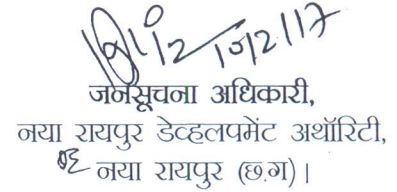 10/2/17
जनसूचना अधिकारी,
नया रायपुर डेव्हलपमेंट अथॉरिटी,
नया रायपुर (छ.ग) ।